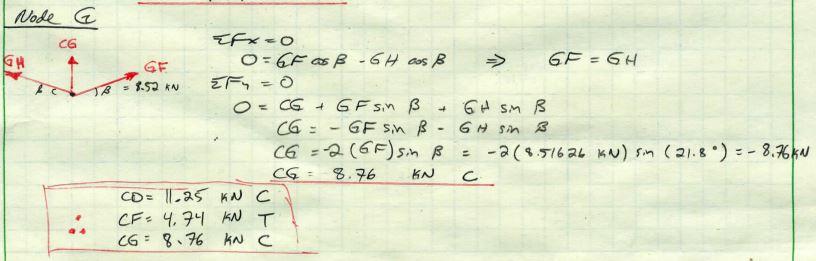 Node G
CG
GH
GF
β
β = 8.52 KN
ΣFx = 0
0 = GF cos β - GH cos β ⇒ GF = GH
ΣFy = 0
0 = CG + GF sin β + GH sin β
CG = - GF sin β - GH sin β
CG = -2 (GF) sin β = -2 (8.51626 KN) sin (21.8°) = -8.76 KN
CG = 8.76 KN C
CD = 11.25 KN C
∴ CF = 4.74 KN T
CG = 8.76 KN C